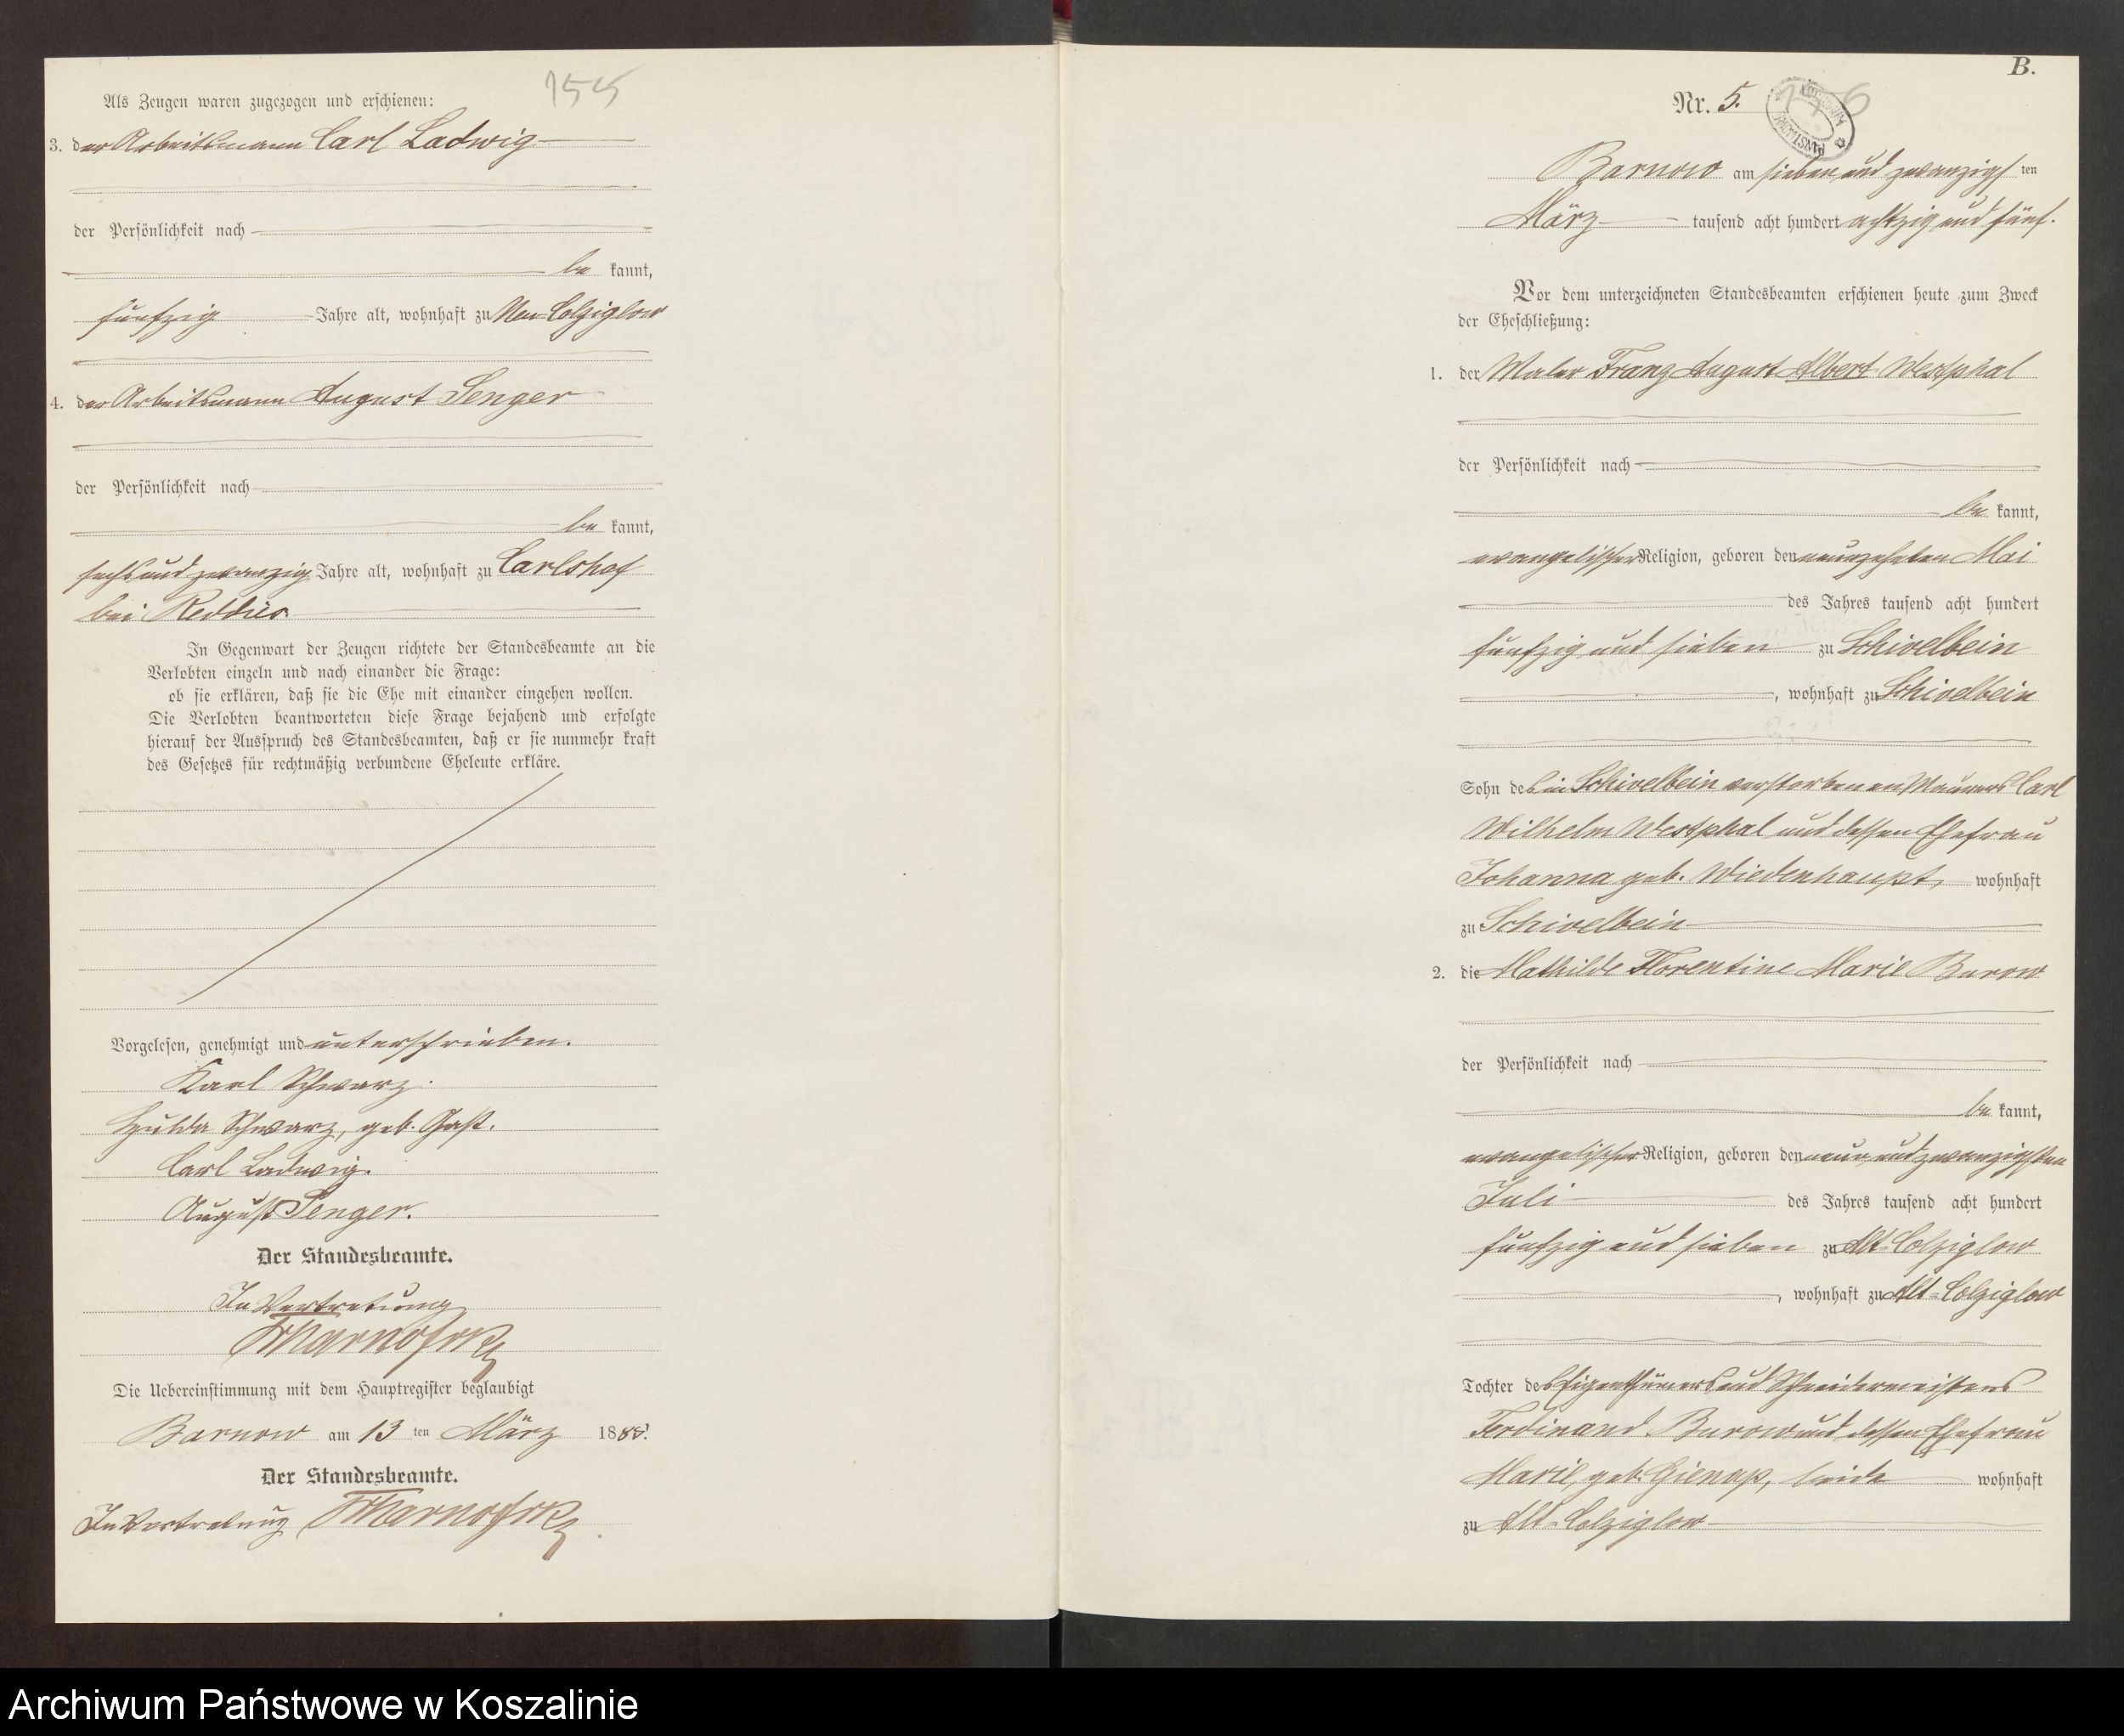 155
Als Zeugen waren zugezogen und erschienen:
3. der Arbeitsmann Carl Ladwig
der Persönlichkeit nach
be kannt,
fünfzig Jahre alt, wohnhaft zu Neu-Colziglow
4. der Arbeitsmann August Senger
der Persönlichkeit nach
be kannt,
sechs und zwanzig Jahre alt, wohnhaft zu Carlshof
bei Reddies
In Gegenwart der Zeugen richtete der Standesbeamte an die
Verlobten einzeln und nach einander die Frage:
ob sie erklären, daß sie die Ehe mit einander eingehen wollen.
Die Verlobten beantworteten diese Frage bejahend und erfolgte
hierauf der Ausspruch des Standesbeamten, daß er sie nunmehr kraft
des Gesetzes für rechtmäßig verbundene Eheleute erkläre.
Vorgelesen, genehmigt und unterschrieben.
Karl Schwarz.
Hulda Schwarz, geb. Gast.
Carl Ladwig.
August Senger.
Der Standesbeamte.
In Vertretung
Die Uebereinstimmung mit dem Hauptregister beglaubigt
Barnow am 13 ten März 1885.
Der Standesbeamte.
In Vertretung
B.
Nr. 5.
Barnow am sieben und zwanzigs ten
März tausend acht hundert achtzig und fünf.
Vor dem unterzeichneten Standesbeamten erschienen heute zum Zweck
der Eheschließung:
1. der Maler Franz August Albert Westphal
der Persönlichkeit nach
be kannt,
evangelischer Religion, geboren den neunzehnten Mai
des Jahres tausend acht hundert
fünfzig und sieben zu Schivelbein
, wohnhaft zu Schivelbein
Sohn des in Schivelbein verstorbenen Maurers Carl
Wilhelm Westphal und dessen Ehefrau
Johanna geb. Wiedenhaupt, wohnhaft
zu Schivelbein
2. die Mathilde Florentine Marie Burow
der Persönlichkeit nach
be kannt,
evangelischer Religion, geboren den neun und zwanzigsten
Juli des Jahres tausend acht hundert
fünfzig und sieben zu Alt-Colziglow
, wohnhaft zu Alt-Colziglow
Tochter des Eigenthümers und Schneidermeisters
Ferdinand Burow und dessen Ehefrau
Marie, geb. Gienap, beide wohnhaft
zu Alt-Colziglow
Archiwum Państwowe w Koszalinie